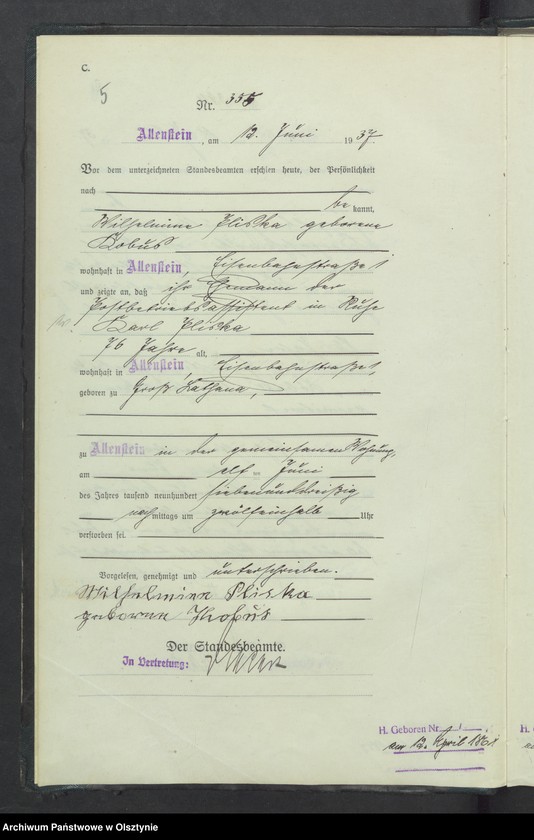 C.
5
Nr. 335
Allenstein, am 12. Juni 1937
Vor dem unterzeichneten Standesbeamten erschien heute, der Persönlichkeit
nach
be kannt,
Wilhelmine Pliska geborene
Kobus
wohnhaft in Allenstein, Eisenbahnstraße 1
und zeigte an, daß ihr Ehemann der
Postbetriebsassistent in Ruhe
Karl Pliska
76 Jahre alt,
wohnhaft in Allenstein, Eisenbahnstraße 1,
geboren zu Groß Lattana,
zu Allenstein in der gemeinsamen Wohnung,
am elf ten Juni
des Jahres tausend neunhundert siebenunddreißig
nach mittags um zwölfeinhalb Uhr
verstorben sei.
Vorgelesen, genehmigt und unterschrieben.
Wilhelmine Pliska
geborene Kobus
Der Standesbeamte.
In Vertretung:
H. Geboren Nr.
am 12. April 1861
H.
Archiwum Państwowe w Olsztynie